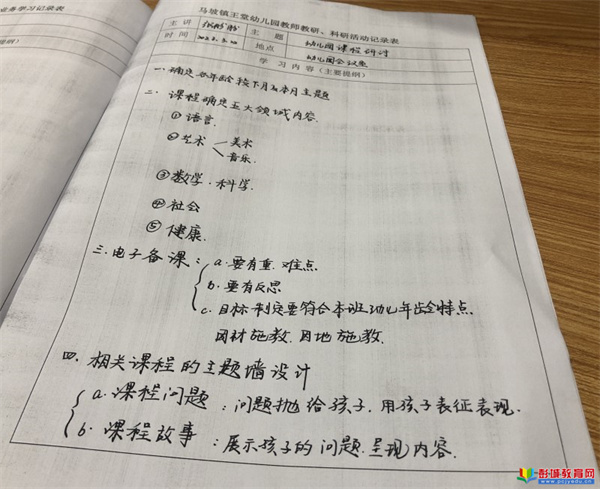 业务学习记录表
提纲）
马坡镇王堂幼儿园教师教研、科研活动记录表
主讲 主题 幼儿园课程研讨
时间 地点 幼儿园会议室
学习内容（主要提纲）
一.确定各年龄按下月及本月主题
二.课程确定五大领域内容.
①语言.
②艺术 美术
音乐.
③数学.科学.
④社会
⑤健康.
三.电子备课: a.要有重.难点.
b.要有反思
c.目标制定要符合本班幼儿年龄特点.
因材施教.因地施教.
四.相关课程的主题墙设计
a.课程问题:问题抛给孩子.用孩子表征表现.
b.课程故事:展示孩子的问题.呈现内容.
彭城教育网
www.pcjyedu.cn